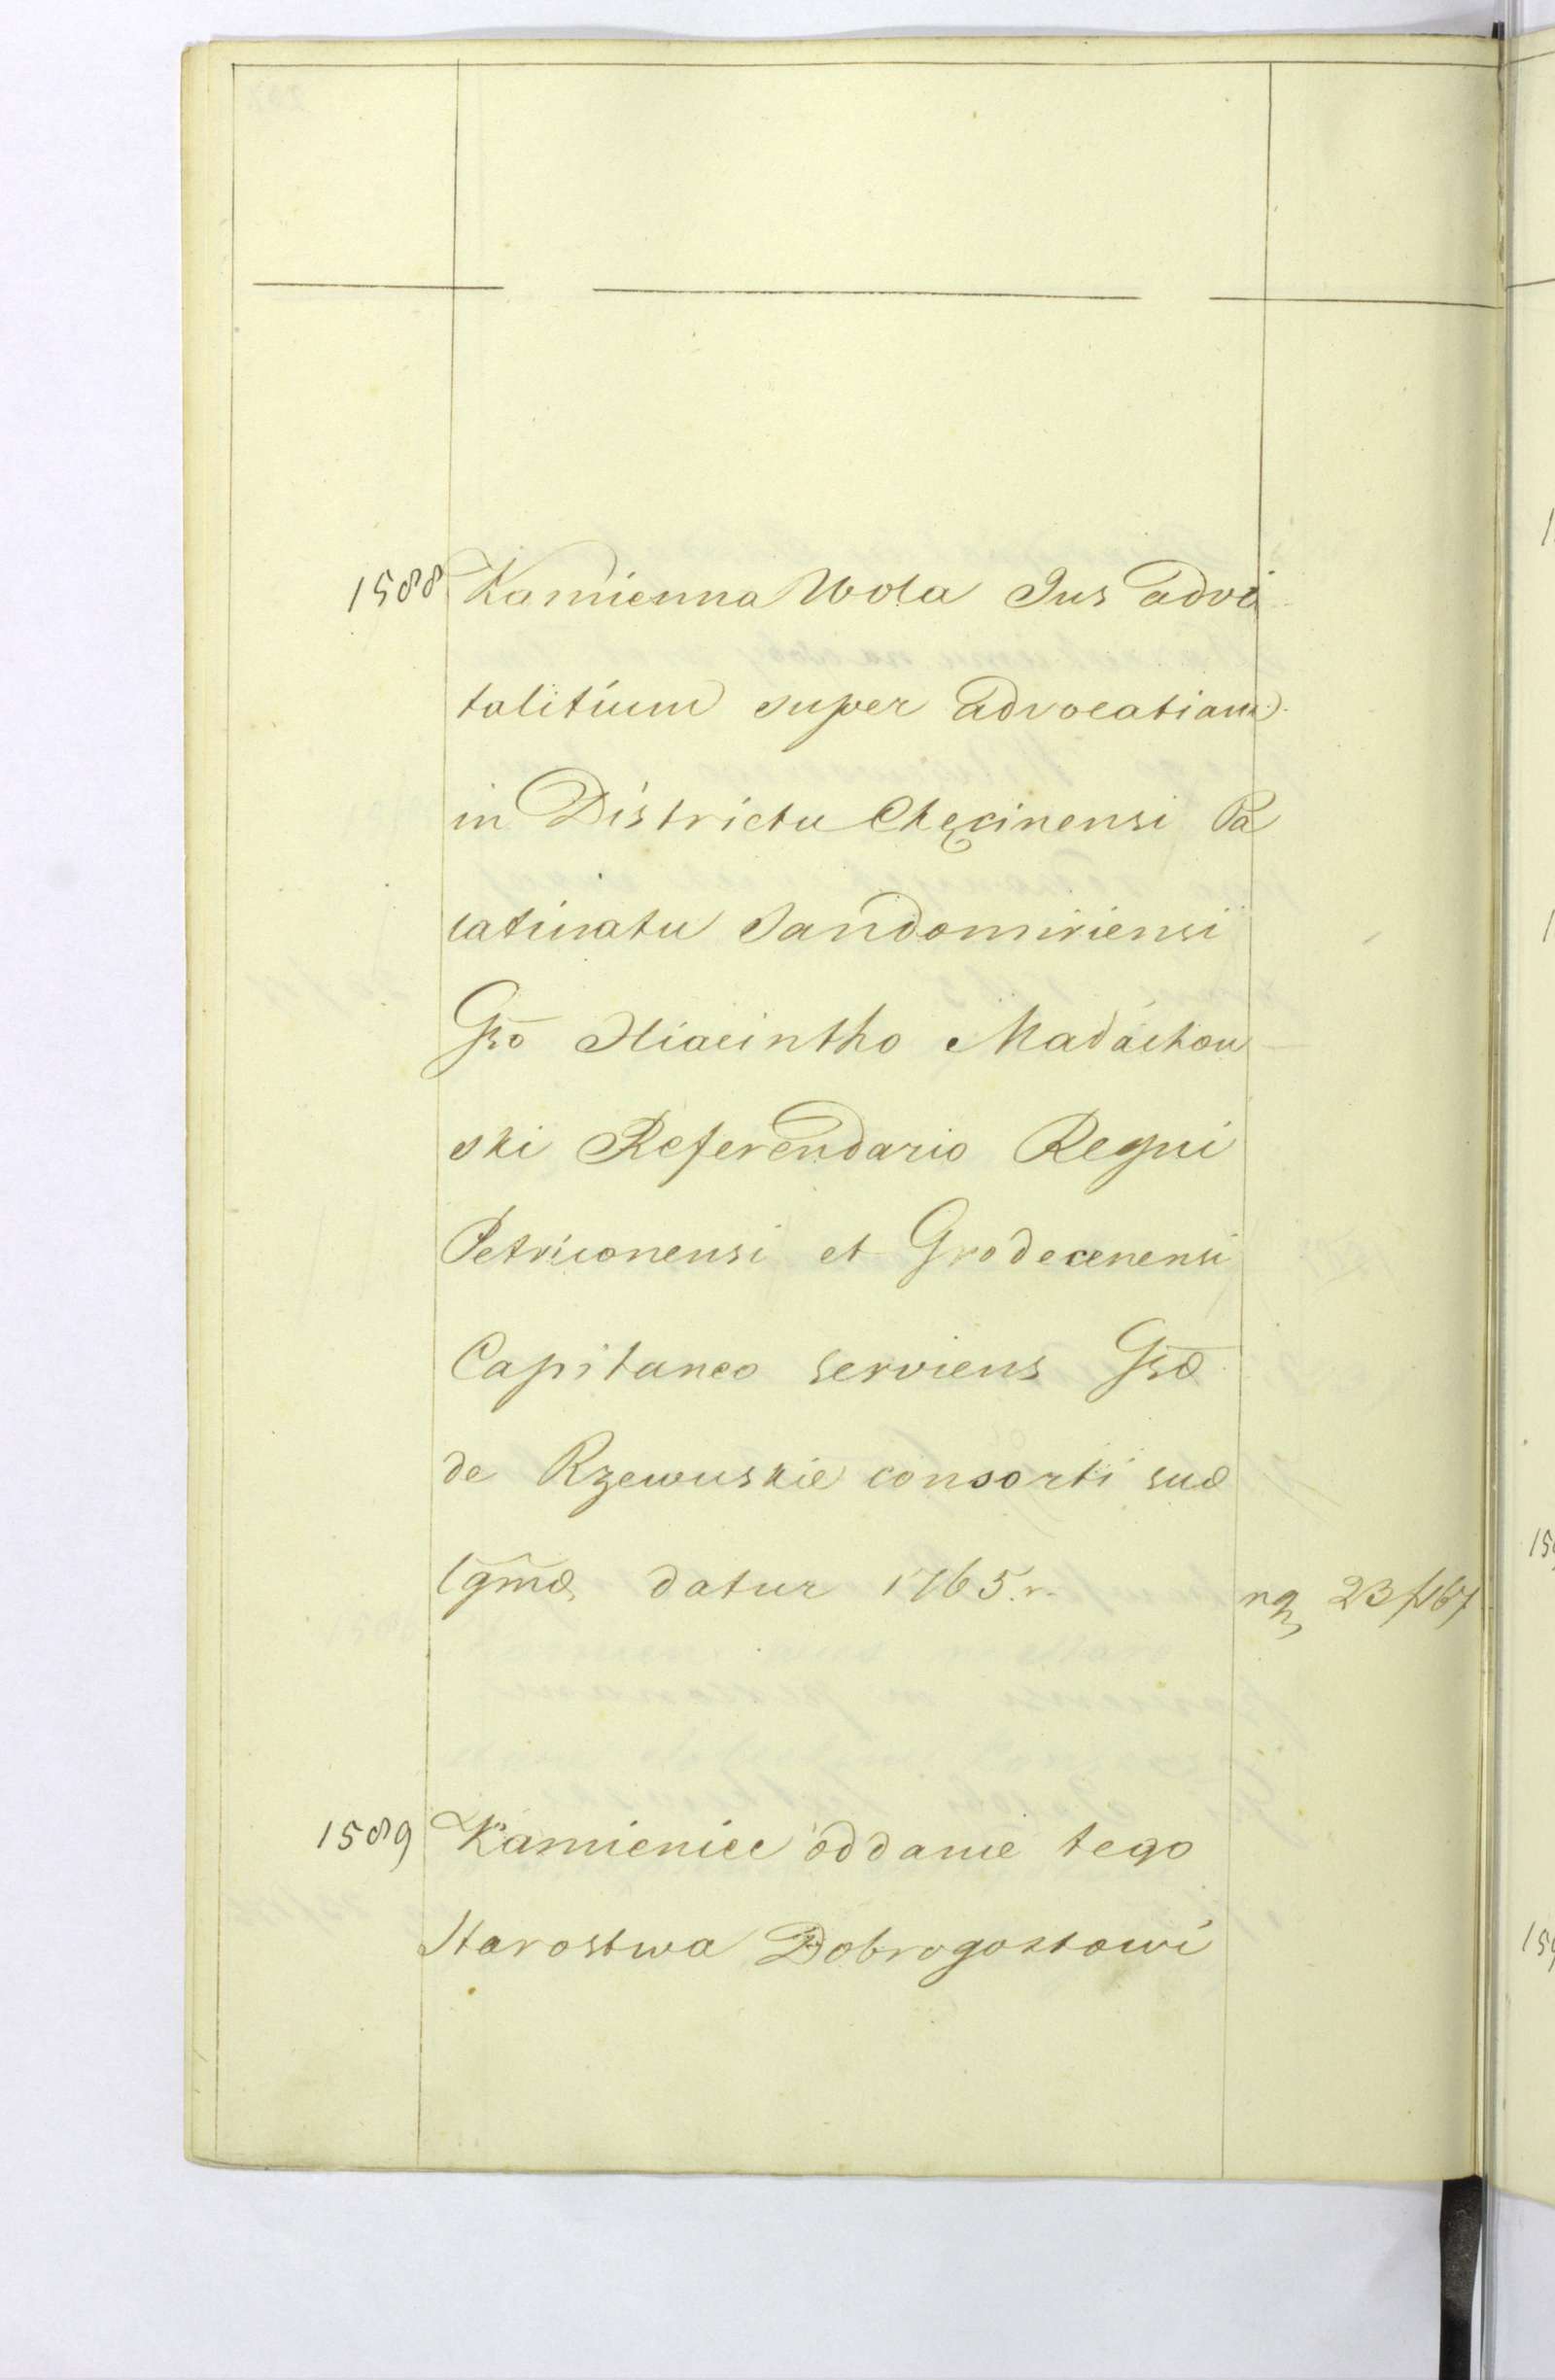 1588 Kamienna Wola Jus advi
talitium super advocatiam
in Districtu Chęcinensi Pa
latinatu Sandomiriensi
Gso Hiacintho Małachow
ski Referendario Regni
Petriconensi et Grodecensi
Capitaneo serviens Gsæ
de Rzewuskie consorti suæ
lgmæ datur 1765.r. 23/167
1589 Kamieniec oddanie tego
Starostwa Dobrogostowi